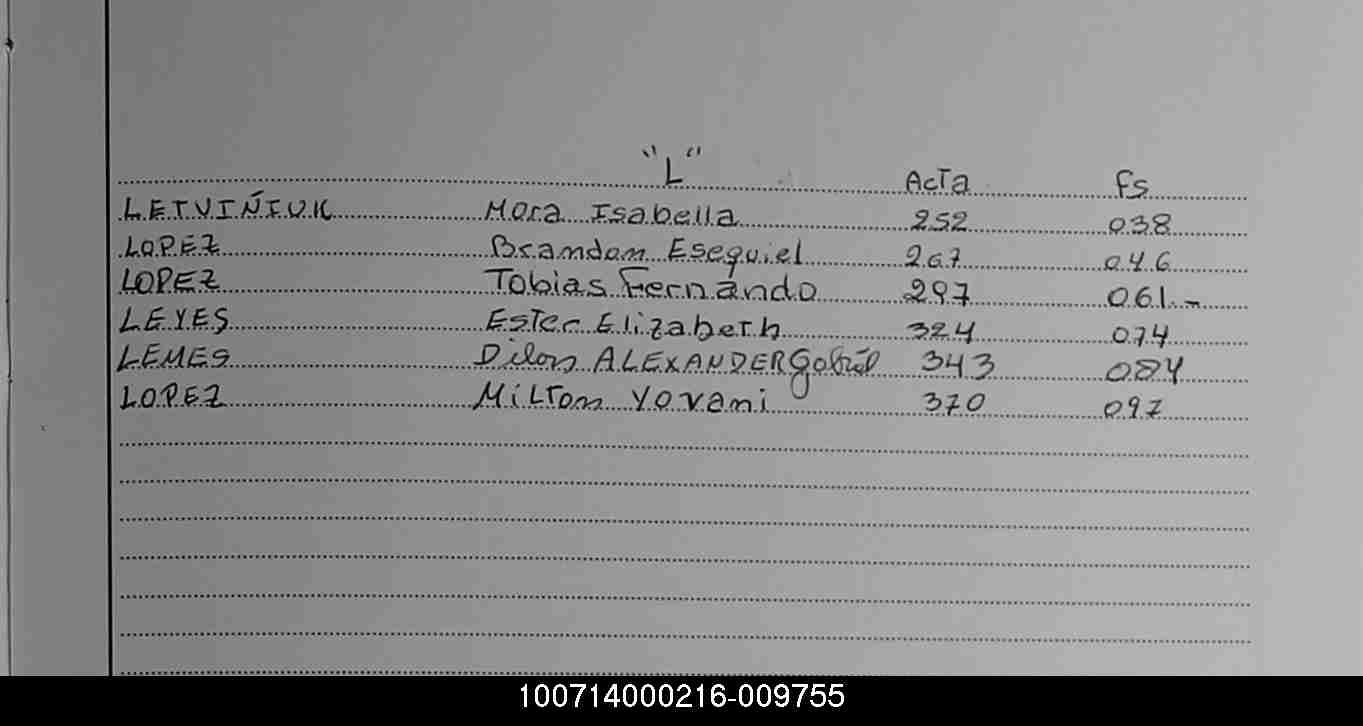 "L"
Acta Fs
LETVIÑIUK Mora Isabella 252 038
LOPEZ Brandon Esequiel 267 046
LOPEZ Tobias Fernando 297 061.-
LEYES Ester Elizabeth 324 074
LEMES Dilon ALEXANDER Gabriel 343 084
LOPEZ Milton Yovani 370 097
100714000216-009755